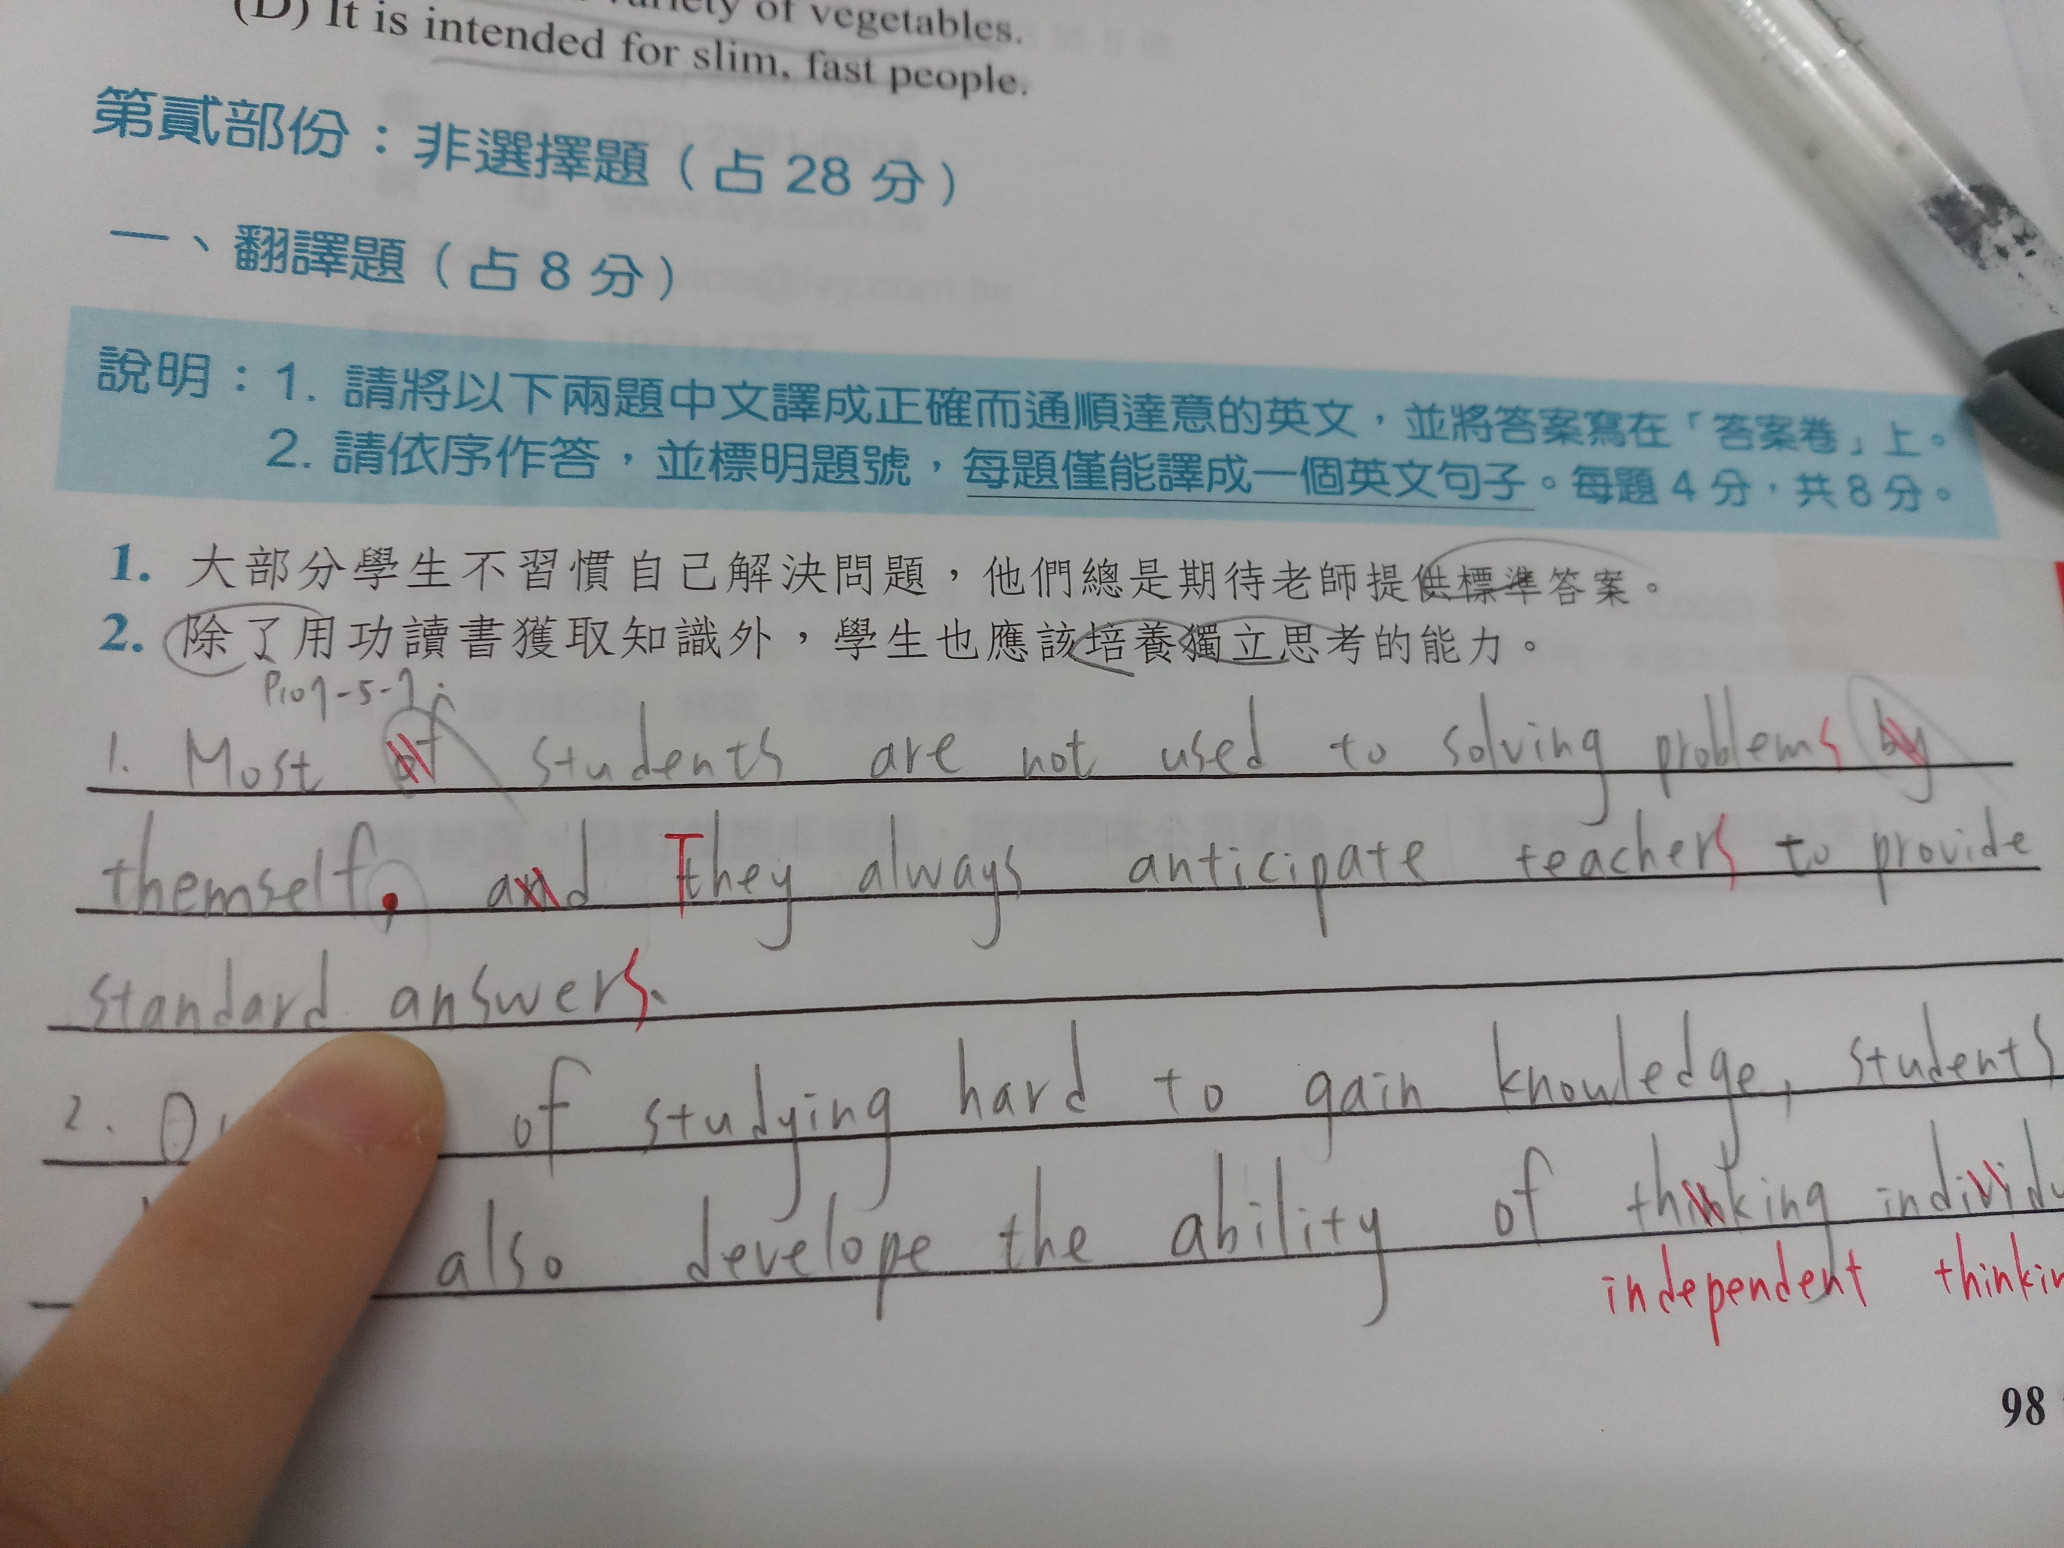 variety of vegetables.
(D) It is intended for slim, fast people.
第貳部份：非選擇題（占 28 分）
一、翻譯題（占 8 分）
說明：1. 請將以下兩題中文譯成正確而通順達意的英文，並將答案寫在「答案卷」上。
2. 請依序作答，並標明題號，每題僅能譯成一個英文句子。每題 4 分，共 8 分。
1. 大部分學生不習慣自己解決問題，他們總是期待老師提供標準答案。
2. 除了用功讀書獲取知識外，學生也應該培養獨立思考的能力。
1. Most of students are not used to solving problems by
themself. and They always anticipate teachers to provide
standard answers.
2. of studying hard to gain knowledge, students
also develope the ability of thinking
independent
98